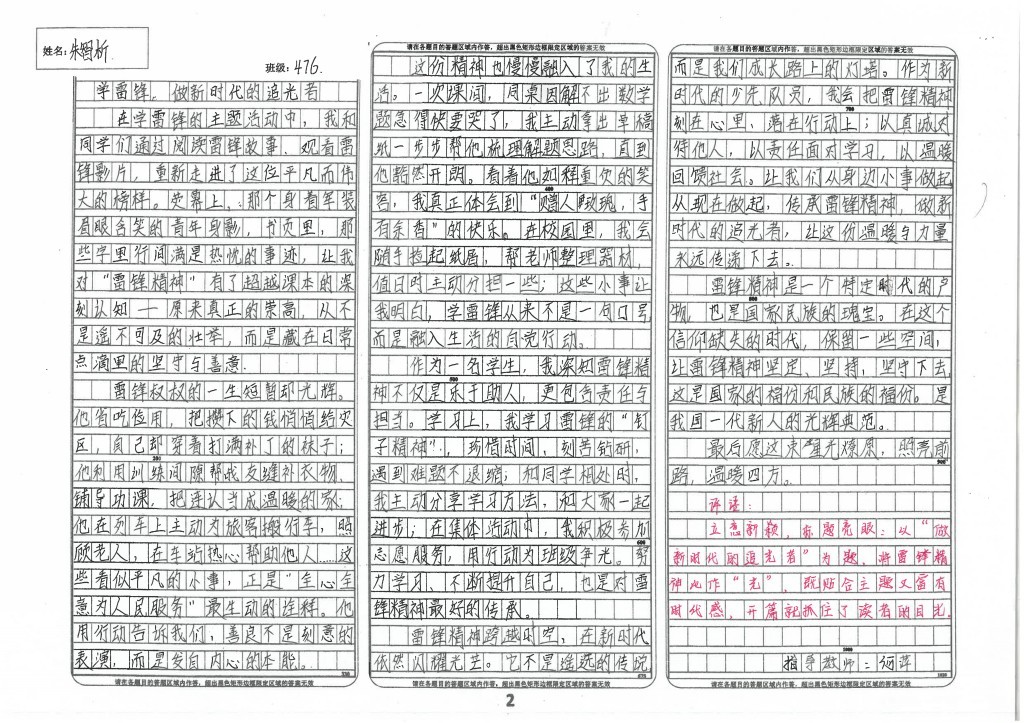 姓名：朱智析
班级：476.
学雷锋，做新时代的追光者
在学雷锋的主题活动中，我和
同学们通过阅读雷锋故事、观看雷
锋影片，重新走进了这位平凡而伟
大的榜样。荧幕上，那个身着军装
眉眼含笑的青年身影，书页里，那
些字里行间满是热忱的事迹，让我
对“雷锋精神”有了超越课本的深
刻认知——原来真正的崇高，从不
是遥不可及的壮举，而是藏在日常
点滴里的坚守与善意.
雷锋叔叔的一生短暂却光辉。
他省吃俭用，把攒下的钱悄悄给灾
区，自己却穿着打满补丁的袜子；
他利用训练间隙帮战友缝补衣物、
辅导功课，把连队当成温暖的家；
他在列车上主动为旅客搬行车，照
顾老人，在车站热心帮助他人……这
些看似平凡的小事，正是“全心全
意为人民服务”最生动的诠释。他
用行动告诉我们，善良不是刻意的
表演，而是发自内心的本能。
请在各题目的答题区域内作答，超出黑色矩形边框限定区域的答案无效
请在各题目的答题区域内作答，超出黑色矩形边框限定区域的答案无效
这份精神也慢慢融入了我的生
活。一次课间，同桌因解不出数学
题急得快要哭了，我主动拿出草稿
纸一步步帮他梳理解题思路，直到
他豁然开朗。看着他如释重负的笑
容，我真正体会到“赠人玫瑰，手
有余香”的快乐。在校园里，我会
随手捡起纸屑，帮老师整理器材，
值日时主动分担一些；这些小事让
我明白，学雷锋从来不是一句口号
而是融入生活的自觉行动。
作为一名学生，我深知雷锋精
神不仅是乐于助人，更包含责任与
担当。学习上，我学习雷锋的“钉
子精神”，珍惜时间，刻苦钻研，
遇到难题不退缩；和同学相处时，
我主动分享学习方法，和大家一起
进步；在集体活动中，我积极参加
志愿服务，用行动为班级争光。努
力学习、不断提升自己，也是对雷
锋精神最好的传承。
雷锋精神跨越时空，在新时代
依然闪耀光芒。它不是遥远的传说
请在各题目的答题区域内作答，超出黑色矩形边框限定区域的答案无效
2
请在各题目的答题区域内作答，超出黑色矩形边框限定区域的答案无效
而是我们成长路上的灯塔。作为新
时代的少先队员，我会把雷锋精神
刻在心里、落在行动上；以真诚对
待他人，以责任面对学习，以温暖
回馈社会。让我们从身边小事做起
从现在做起，传承雷锋精神，做新
时代的追光者，让这份温暖与力量
永远传递下去。
雷锋精神是一个特定时代的产
物，也是国家民族的瑰宝。在这个
信仰缺失的时代，保留一些空间，
让雷锋精神坚定、坚持，坚守下去
这是国家的福份和民族的福份。是
我国一代新人的光辉典范。
最后愿这束“星光燎原，照亮前
路，温暖四方。
评语：
立意新颖，标题亮眼：以“做
新时代的追光者”为题，将雷锋精
神比作“光”，既贴合主题又富有
时代感，开篇就抓住了读者的目光.
指导教师：
请在各题目的答题区域内作答，超出黑色矩形边框限定区域的答案无效